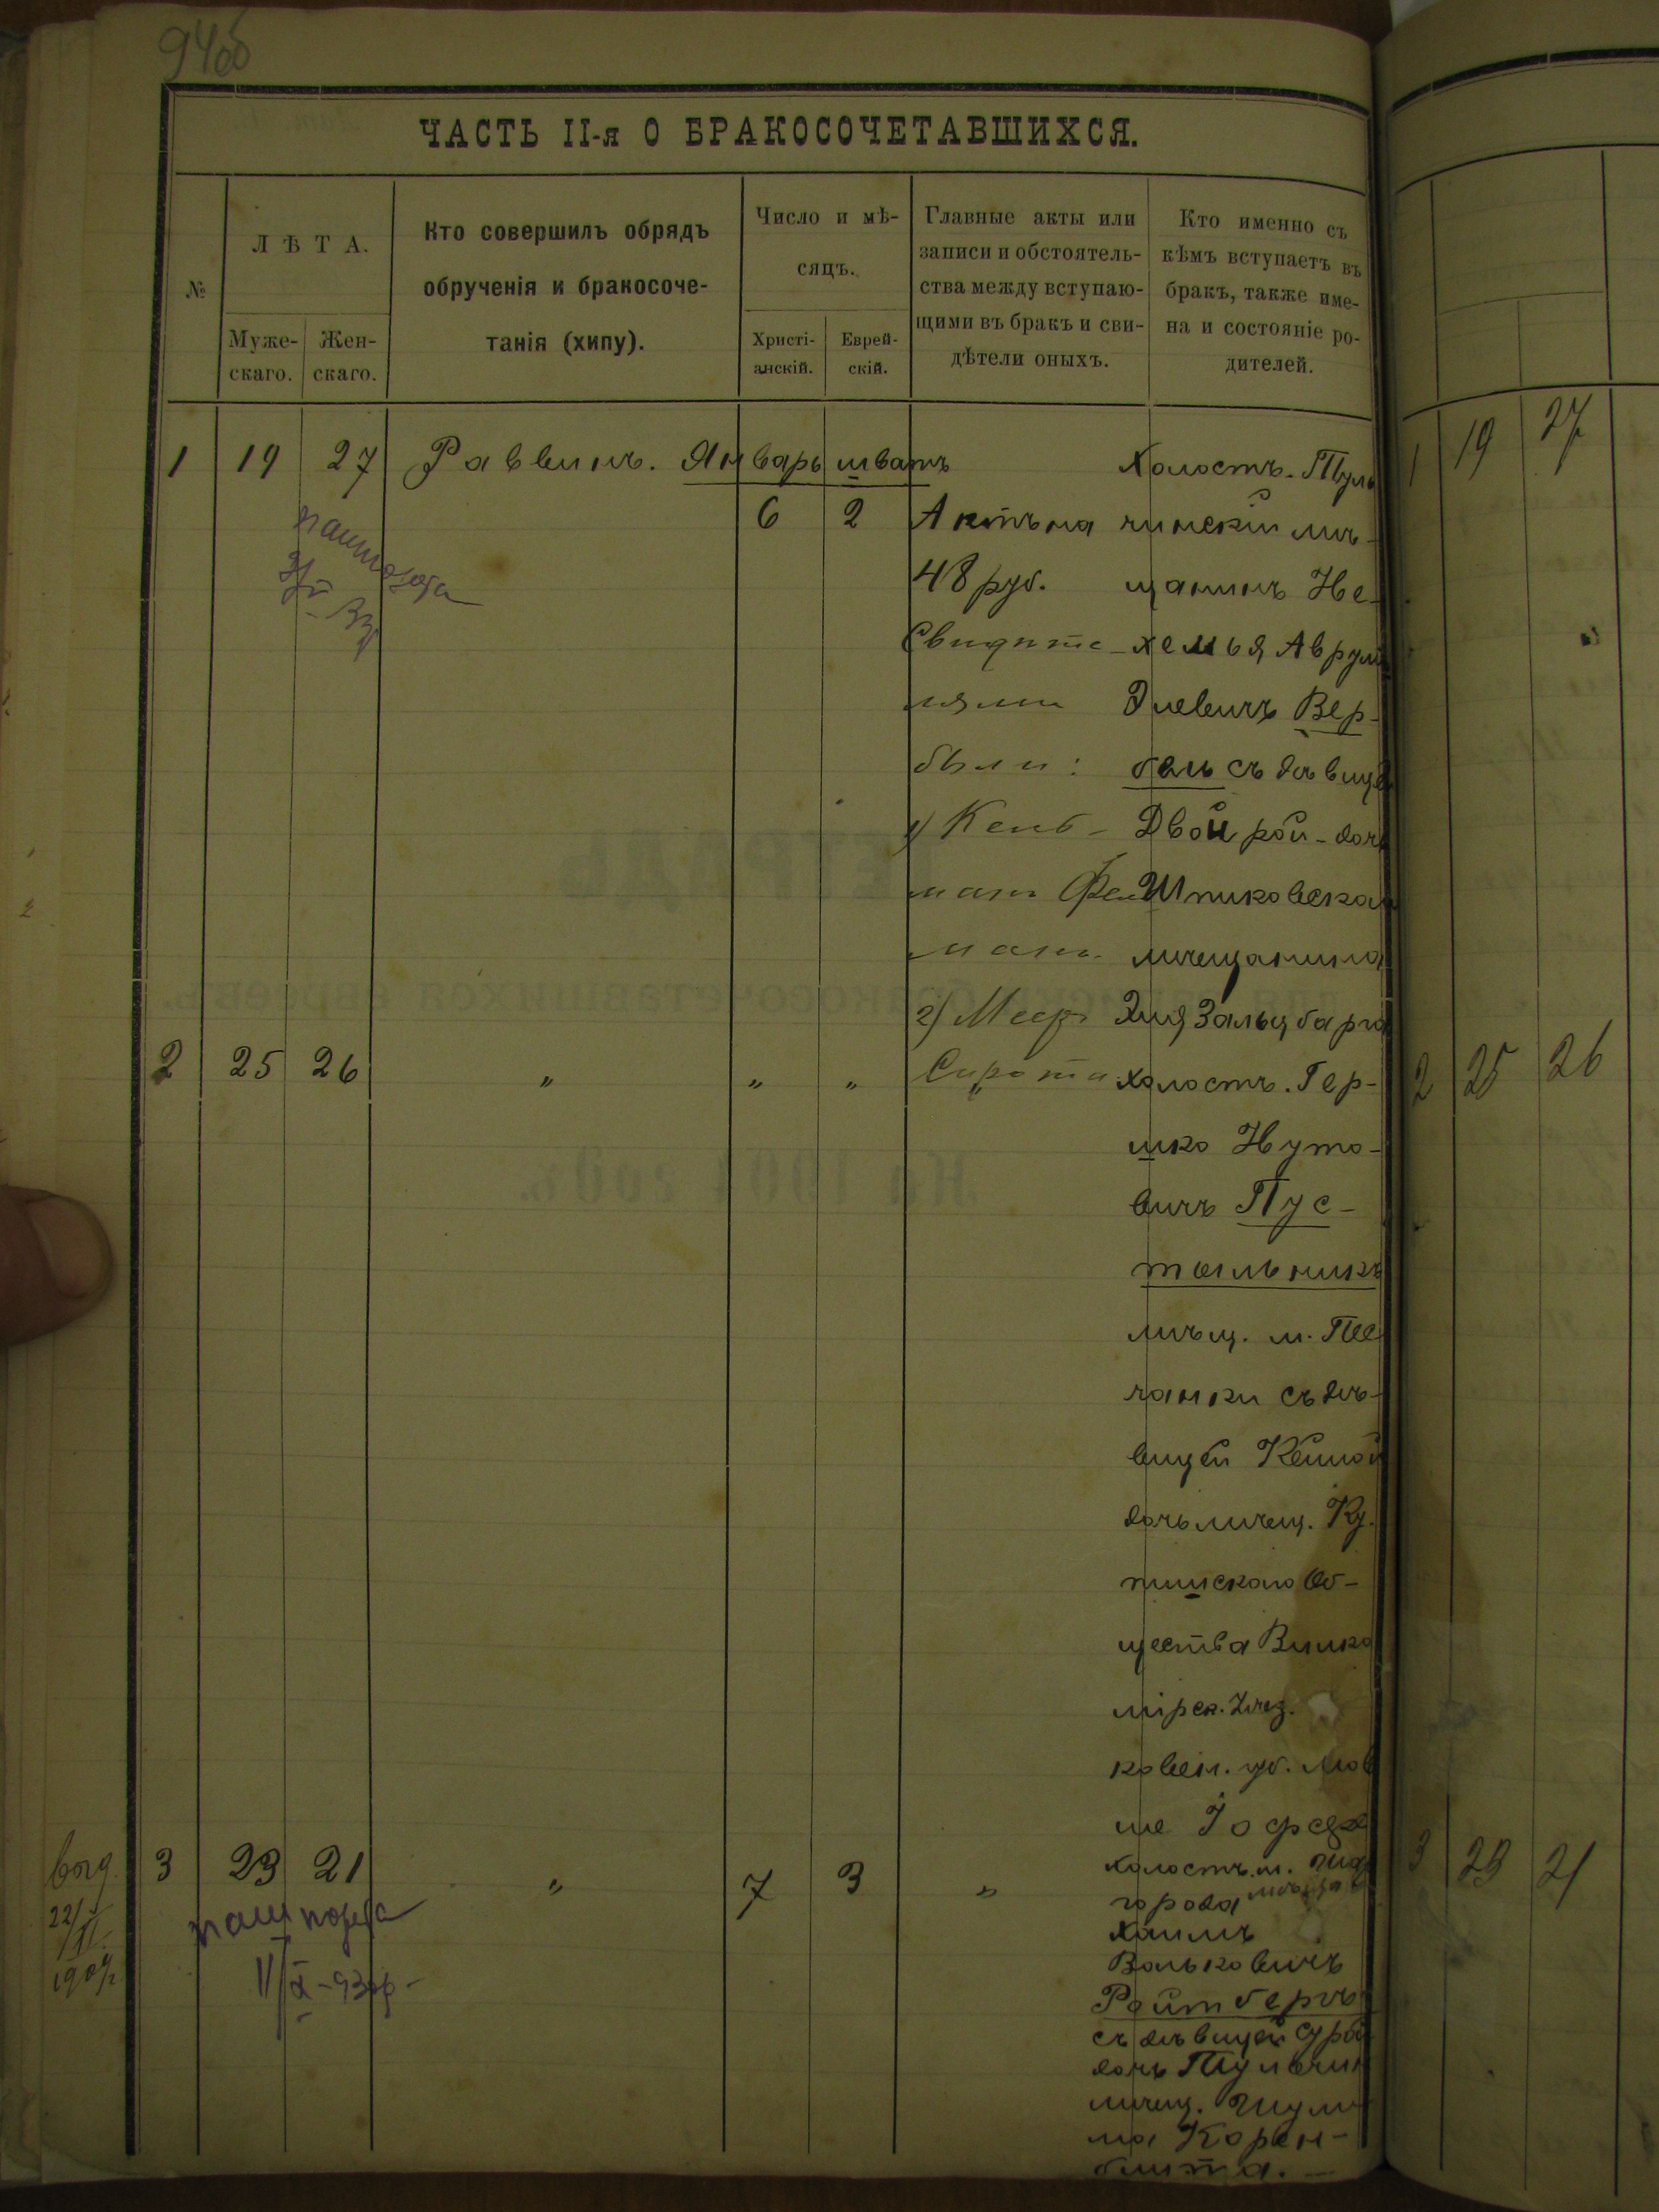 94об
ЧАСТЬ II-я О БРАКОСОЧЕТАВШИХСЯ.
№
ЛѢТА.
Муже-
скаго.
Жен-
скаго.
Кто совершилъ обрядъ
обрученія и бракосоче-
танія (хипу).
Число и мѣ-
сяцъ.
Христі-
анскій.
Еврей-
скій.
Главные акты или
записи и обстоятель-
ства между вступаю-
щими въ бракъ и сви-
дѣтели оныхъ.
Кто именно съ
кѣмъ вступаетъ въ
бракъ, также име-
на и состояніе ро-
дителей.
1 19 27 Раввинъ. Январь шватъ
6 2
Актъ на
48 руб.
Свидите-
лями
были:
1)
2) Меер
Сирота
Холостъ. Туль
чинскій мѣ-
щанинъ Не-
хемья Аврум
Элевичъ Вер-
бель съ дѣвицей
Двойрой - дочь
Шпиковска
мѣщанина
Зальцбарга
2 25 26 " " " "
холостъ. Гер-
шко Нуто-
вичъ Пус-
тыльникъ
мѣщ. м. Пе
чанки съ дѣ-
вицей Кейлой
дочь мѣщ. Ку.
скаго Об-
щества Вилко
мірск. Уѣз.
ковен. гу. Мов
ше Іоффе
выд.
22/
III
1909г
3 23 21 " 7 3 "
холостъ. м.
города
Хаимъ
Вольковичъ
Ройтбергъ
съ дѣвицей Сурой
дочь Тульчин
мѣщ. Шулы
ма Корен-
блита. -
1 19 27
2 25 26
3 23 21